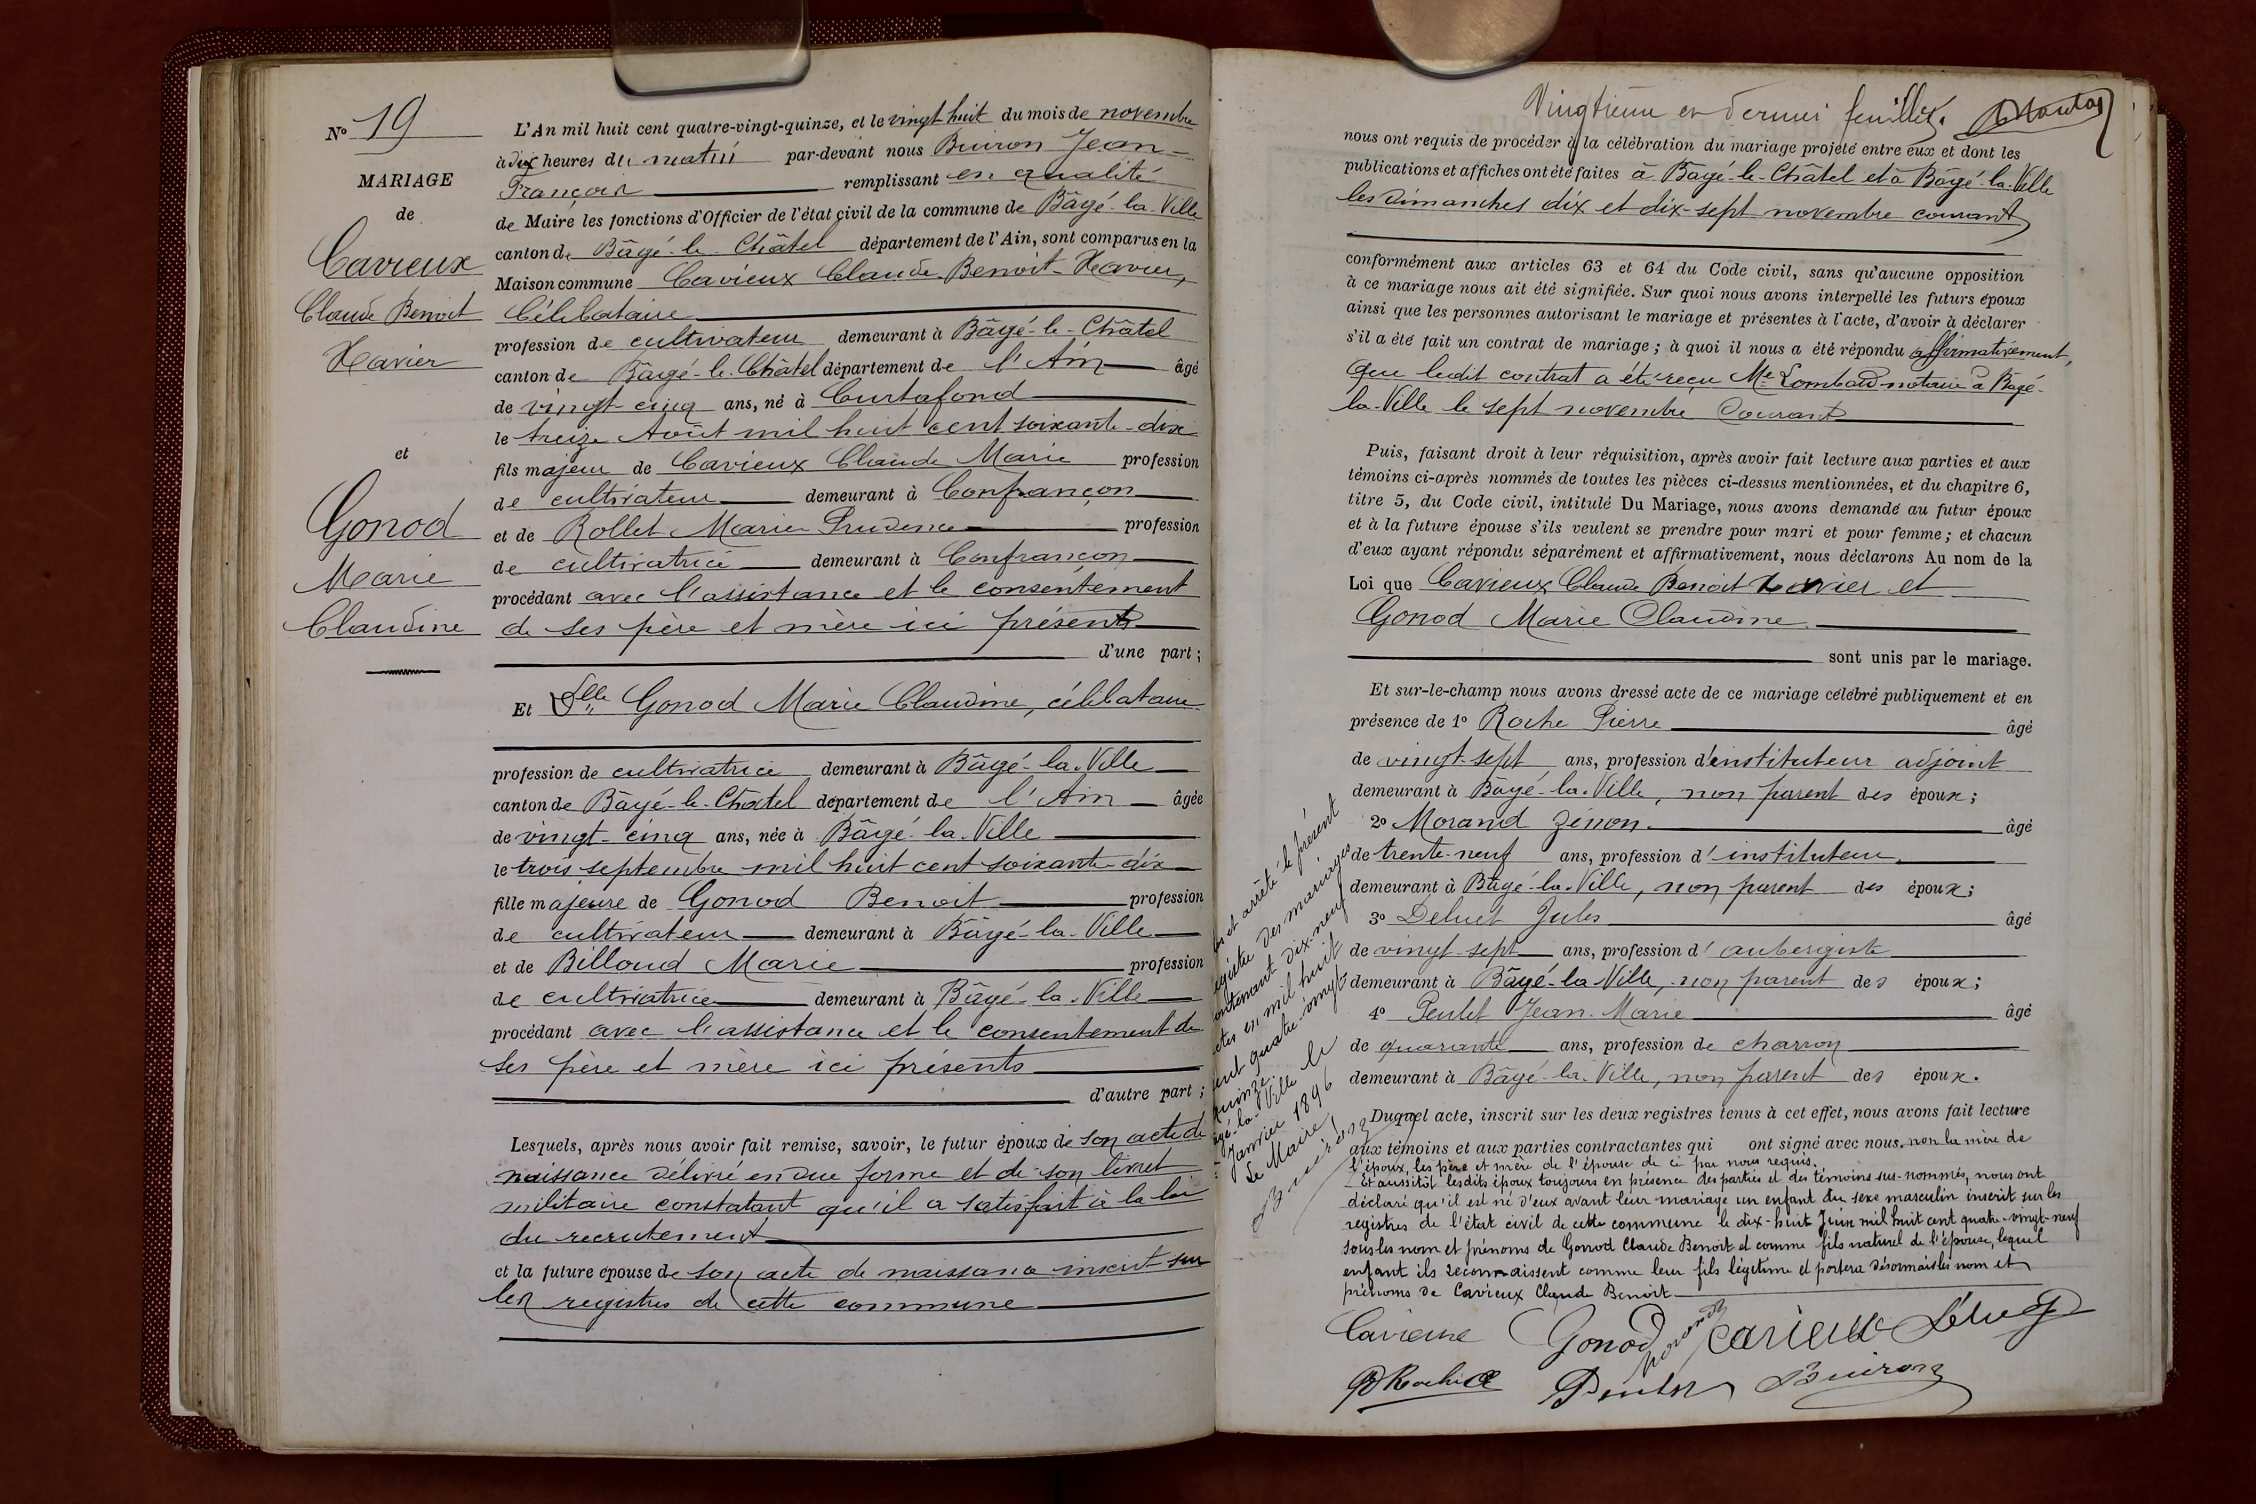 Nº 19
MARIAGE
de
Cavieux
Claude Benoit
Xavier
et
Gonod
Marie
Claudine
L'An mil huit cent quatre-vingt-quinze, et le vingt huit du mois de novembre
à dix heures du matin par-devant nous Buiron Jean-
François remplissant en qualité
de Maire les fonctions d'Officier de l'état civil de la commune de Bâgé-la-Ville
canton de Bâgé-le-Châtel département de l'Ain, sont comparus en la
Maison commune Cavieux Claude Benoit-Xavier,
Célibataire
profession de cultivateur demeurant à Bâgé-le-Châtel
canton de Bâgé-le-Châtel département de l'Ain âgé
de vingt-cinq ans, né à Curtafond
le treize Août mil huit cent soixante-dix
fils majeur de Cavieux Claude Marie profession
de cultivateur demeurant à Confrançon
et de Rollet Marie Prudence profession
de cultivatrice demeurant à Confrançon
procédant avec l'assistance et le consentement
de ses père et mère ici présents
d'une part;
Et Dlle Gonod Marie Claudine, célibataire
profession de cultivatrice demeurant à Bâgé-la-Ville
canton de Bâgé-le-Châtel département de l'Ain âgée
de vingt-cinq ans, née à Bâgé-la-Ville
le trois septembre mil huit cent soixante-dix
fille majeure de Gonod Benoit profession
de cultivateur demeurant à Bâgé-la-Ville
et de Billoud Marie profession
de cultivatrice demeurant à Bâgé-la-Ville
procédant avec l'assistance et le consentement de
ses père et mère ici présents
d'autre part;
Lesquels, après nous avoir fait remise, savoir, le futur époux de son acte de
naissance délivré en due forme et de son livret
militaire constatant qu'il a satisfait à la loi
du recrutement
et la future épouse de son acte de naissance inscrit sur
les registres de cette commune
Vingtième et dernier feuillet.
nous ont requis de procéder à la célébration du mariage projeté entre eux et dont les
publications et affiches ont été faites à Bâgé-le-Châtel et à Bâgé-la-Ville
les dimanches dix et dix-sept novembre courant
conformément aux articles 63 et 64 du Code civil, sans qu'aucune opposition
à ce mariage nous ait été signifiée. Sur quoi nous avons interpellé les futurs époux
ainsi que les personnes autorisant le mariage et présentes à l'acte, d'avoir à déclarer
s'il a été fait un contrat de mariage; à quoi il nous a été répondu affirmativement,
que ledit contrat a été reçu Me Lombard notaire à Bâgé-
la-Ville le sept novembre courant
Puis, faisant droit à leur réquisition, après avoir fait lecture aux parties et aux
témoins ci-après nommés de toutes les pièces ci-dessus mentionnées, et du chapitre 6,
titre 5, du Code civil, intitulé Du Mariage, nous avons demandé au futur époux
et à la future épouse s'ils veulent se prendre pour mari et pour femme; et chacun
d'eux ayant répondu séparément et affirmativement, nous déclarons Au nom de la
Loi que Cavieux Claude Benoit Xavier et
Gonod Marie Claudine
sont unis par le mariage.
Et sur-le-champ nous avons dressé acte de ce mariage célébré publiquement et en
présence de 1º Roche Pierre âgé
de vingt-sept ans, profession d'instituteur adjoint
demeurant à Bâgé-la-Ville, non parent des époux;
2º Morand Zénon âgé
de trente-neuf ans, profession d'instituteur
demeurant à Bâgé-la-Ville, non parent des époux;
3º Deluet Jules âgé
de vingt-sept ans, profession d'aubergiste
demeurant à Bâgé-la-Ville, non parent des époux;
4º Peulet Jean-Marie âgé
de quarante ans, profession de charron
demeurant à Bâgé-la-Ville, non parent des époux.
Duquel acte, inscrit sur les deux registres tenus à cet effet, nous avons fait lecture
aux témoins et aux parties contractantes qui ont signé avec nous, non la mère de
l'époux, les père et mère de l'épouse de ce par nous requis.
Et aussitôt lesdits époux toujours en présence des parties et des témoins sus-nommés, nous ont
déclaré qu'il est né d'eux avant leur mariage un enfant du sexe masculin inscrit sur les
registres de l'état civil de cette commune le dix-huit Juin mil huit cent quatre-vingt-neuf
sous les nom et prénoms de Gonod Claude Benoit et comme fils naturel de l'épouse, lequel
enfant ils reconnaissent comme leur fils légitime et portera désormais les nom et
prénoms de Cavieux Claude Benoit
Cavieux Gonod Morand Cavieux
P Roche Buiron
et arrêté le présent
registre des mariages
contenant dix-neuf
actes en mil huit
cent quatre vingt
quinze.
Bâgé-la-Ville le
Janvier 1896
Le Maire
Buiron